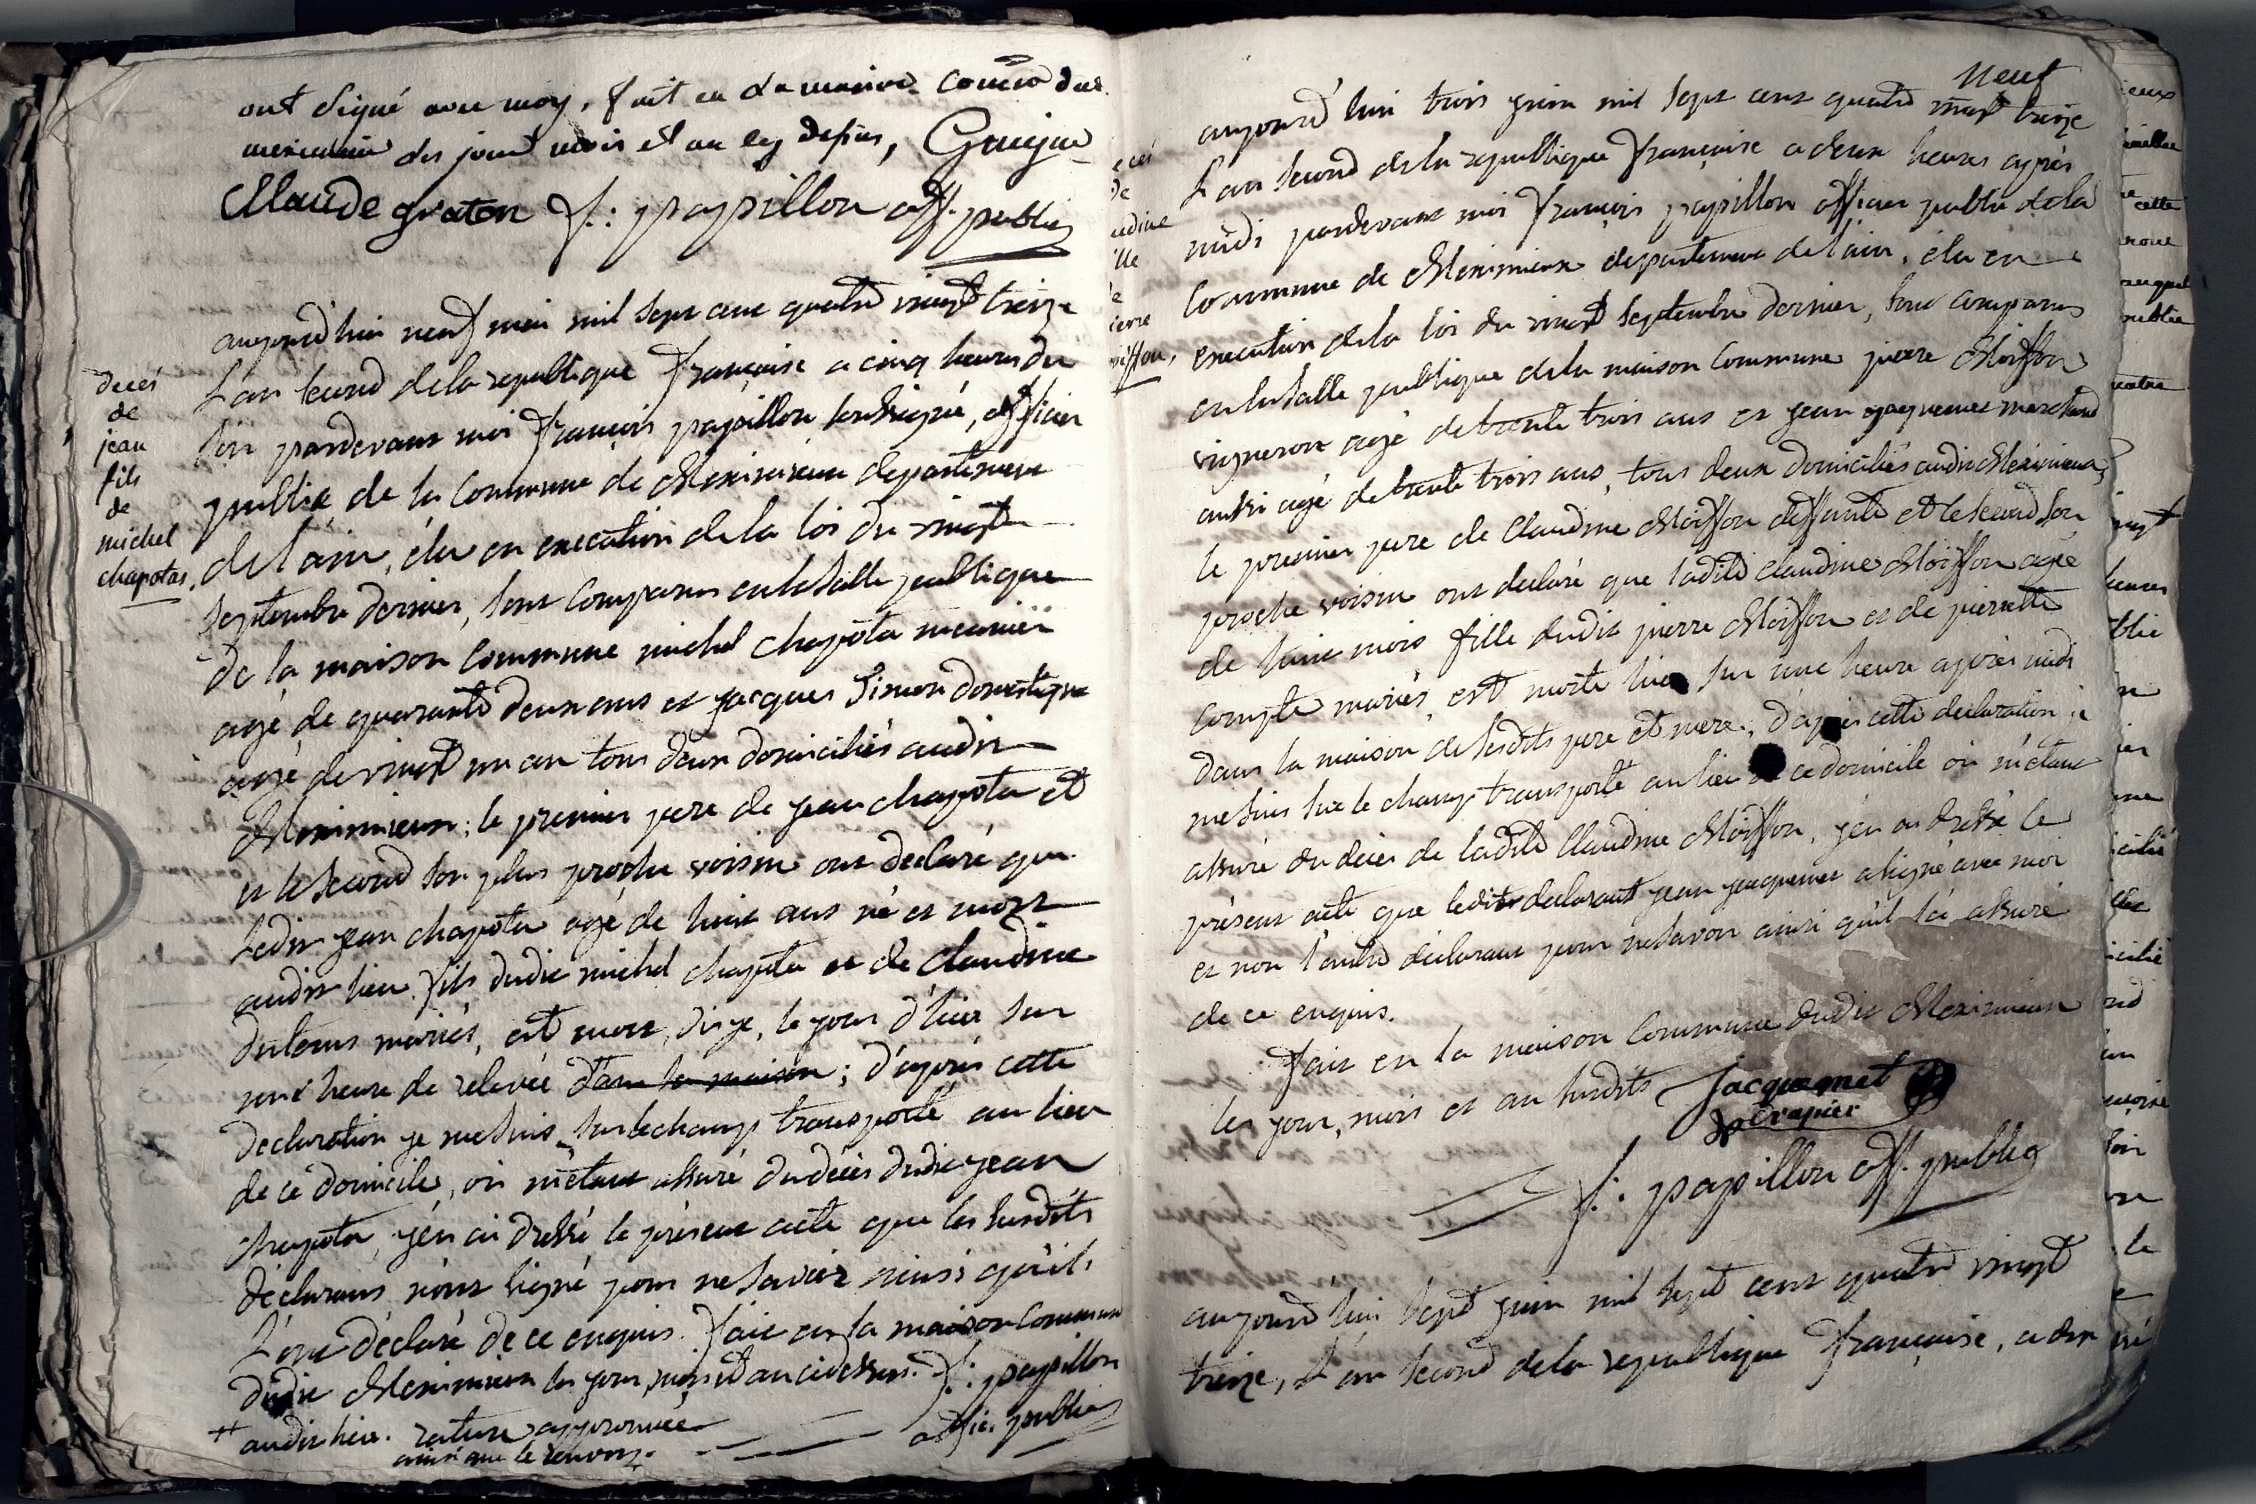 ont signé avec moy, fait en la maison
meximieux des jour mois et an cy dessus,
Claude graton f: papillon off. public
aujourd'hui neuf mai mil sept cent quatre vingt treize
L'an second de la republique française a cinq heures du
soir pardevant moi françois papillon soussigné, officier
public de la commune de Meximieux departement
de l'ain, élu en execution de la loi du vingt
septembre dernier, sont comparus en la salle publique
de la maison commune michel chapota meunier
agé de quarante deux ans et jacques Simon domestique
agé de vingt un an tous deux domiciliés audit
Meximieux; le premier pere de jean chapota et
et le second son plus proche voisin ont declaré que
Ledit jean chapota agé de huit ans né et mort
audit lieu fils dudit michel chapota et de claudine
mariés, est mort, dis je, le jour d'hier sur
heure de relevée dans la maison; d'après cette
declaration je me suis sur le champ transporté au lieu
de ce domicile, où m'étant assuré du décès dudit jean
chapota, j'en ai dressé le présent acte que les susdits
déclarans n'ont signé pour ne savoir ainsi qu'ils
L'ont déclaré de ce enquis. fait en la maison commune
dudit Meximieux les jour, mois et an ci dessus. f: papillon
offic. public
++ audit lieu. rature approuvée
ainsi que le renvoy.
decés
de
jean
fils
de
michel
chapotas,
neuf
aujourd'hui trois juin mil sept cent quatre vingt treize
L'an second de la republique française a deux heures après
midi pardevant moi françois papillon officier public de la
Commune de Meximieux departement de l'ain, élu en
execution de la loi du vingt septembre dernier, sont comparus
en la salle publique de la maison commune pierre Moiffon
vigneron agé de trente trois ans et jean jacquemet marchand
aussi agé de trente trois ans, tous deux domiciliés audit Meximieux,
le premier pere de Claudine Moiffon deffunte et le second son
proche voisin ont declaré que ladite claudine Moiffon agée
de huit mois fille dudit pierre Moiffon et de pierrette
compte mariés, est morte hier sur une heure après midi
dans la maison de sesdits pere et mere; d'après cette declaration je
me suis sur le champ transporté au lieu de ce domicile où m'étant
assuré du décès de ladite Claudine Moiffon, j'en ai dressé le
présent acte que ledit declarant jean jacquemet a signé avec moi
et non l'autre déclarant pour ne savoir ainsi qu'il l'a assuré
de ce enquis.
fait en la maison commune dudit Meximieux
les jour, mois et an susdits Jacquemet
f: papillon off. public
aujourd'hui sept juin mil sept cent quatre vingt
treize, L'an second de la republique française, a dix